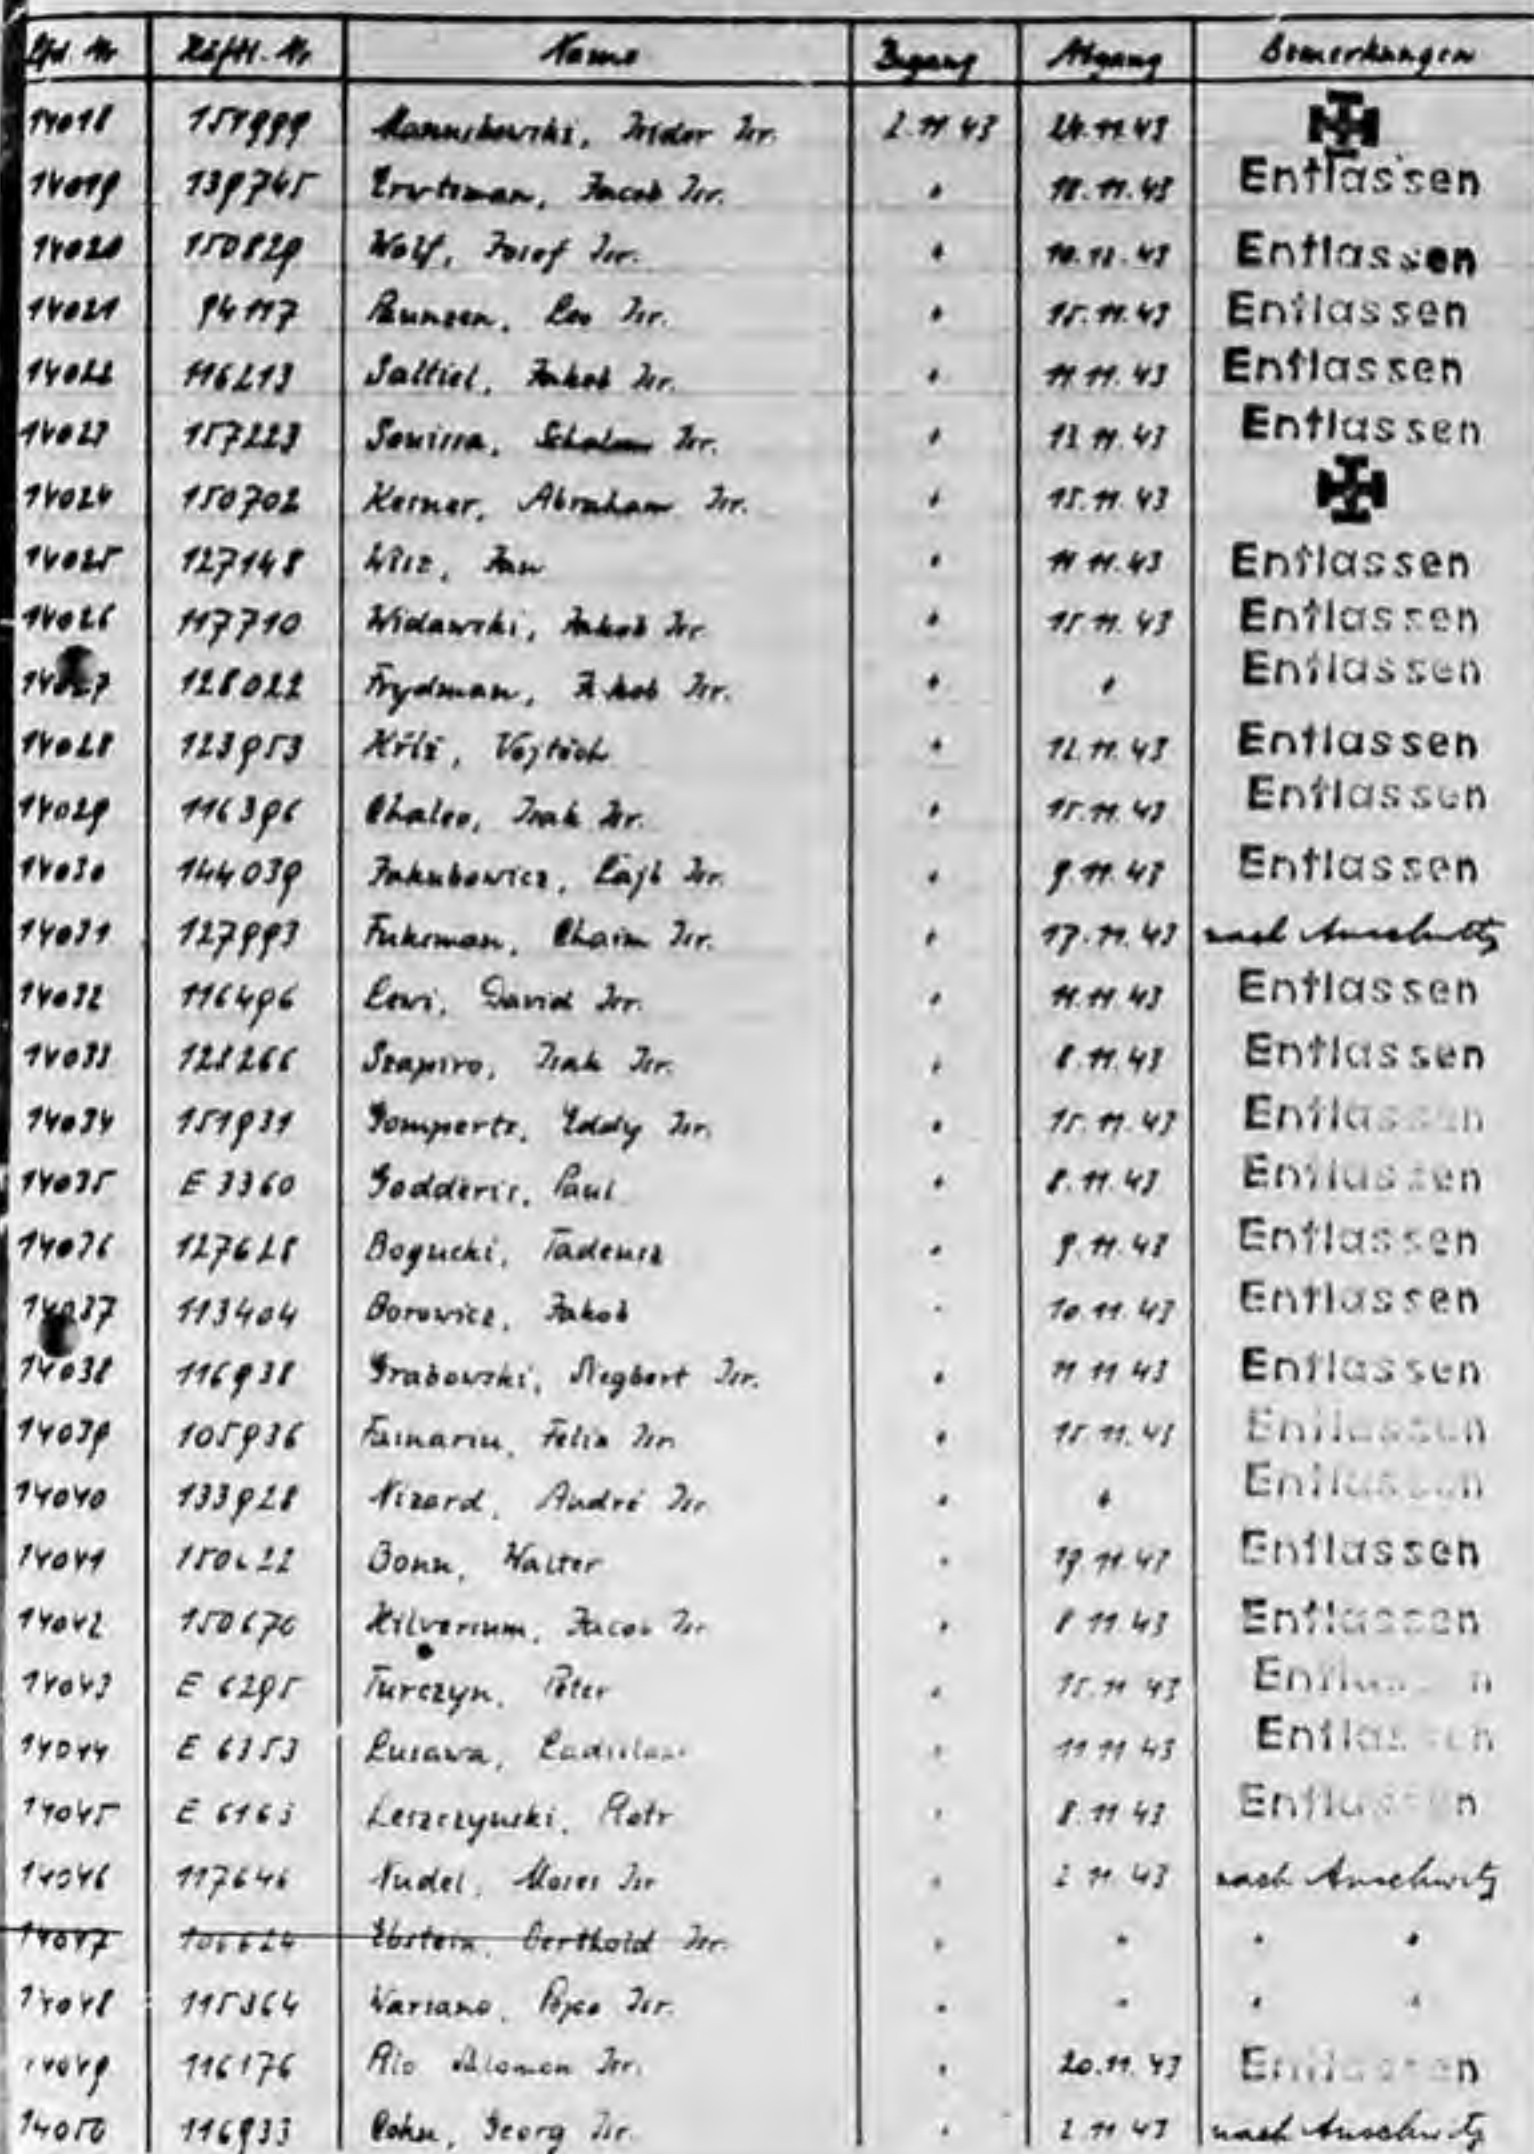 Lfd. Nr Häftl.-Nr. Name Zugang Abgang Bemerkungen
14018 151999 Isidor Isr. 2.11.43 24.11.43
14019 139745 Jacob Isr. " 18.11.43 Entlassen
14020 150829 Wolf, Josef Isr. " Entlassen
14021 94117 Leo Isr. " 15.11.43 Entlassen
14022 116213 Saltiel, Jakob Isr. " 11.11.43 Entlassen
14023 157223 Isr. " Entlassen
14024 150702 Kerner, Abraham Isr. " 15.11.43
14025 127148 Jan " 11.11.43 Entlassen
14026 117710 Widawski, Jakob Isr. " 15.11.43 Entlassen
14027 128022 Frydman, Jakob Isr. " " Entlassen
14028 123953 Kříž, Vojtěch " 12.11.43 Entlassen
14029 116396 Chaleo, Isak Isr. " 15.11.43 Entlassen
14030 144039 Jakubowicz, Lajb Isr. " 9.11.43 Entlassen
14031 127993 Fuksman, Chaim Isr. " 17.11.43 nach Auschwitz
14032 116496 Lewi, David Isr. " 11.11.43 Entlassen
14033 128266 Szapiro, Isak Isr. " 8.11.43 Entlassen
14034 151931 Gompertz, Eddy Isr. " 15.11.43 Entlassen
14035 E 3360 Godderis, Paul " 8.11.43 Entlassen
14036 127628 Bogucki, Tadeusz " 9.11.43 Entlassen
14037 113404 Borowicz, Jakob " 10.11.43 Entlassen
14038 116938 Grabowski, Siegbert Isr. " 11.11.43 Entlassen
14039 105936 Felix Isr. " 15.11.43 Entlassen
14040 133928 Nizard, André Isr. " " Entlassen
14041 150622 Bonn, Walter " 19.11.43 Entlassen
14042 150670 Hilversum, Jacob Isr. " 8.11.43 Entlassen
14043 E 6295 Turczyn, Peter " 15.11.43 Entlassen
14044 E 6353 Lusawa, Ladislaus " 11.11.43 Entlassen
14045 E 6163 Leszczynski, Piotr " 8.11.43 Entlassen
14046 117646 Nudel, Moses Isr. " 2.11.43 nach Auschwitz
14047 106624 Ebstein, Berthold Isr. " " " "
14048 115364 Warsano, Pepo Isr. " " " "
14049 116176 Salomon Isr. " 20.11.43 Entlassen
14050 116933 Cohn, Georg Isr. " 2.11.43 nach Auschwitz